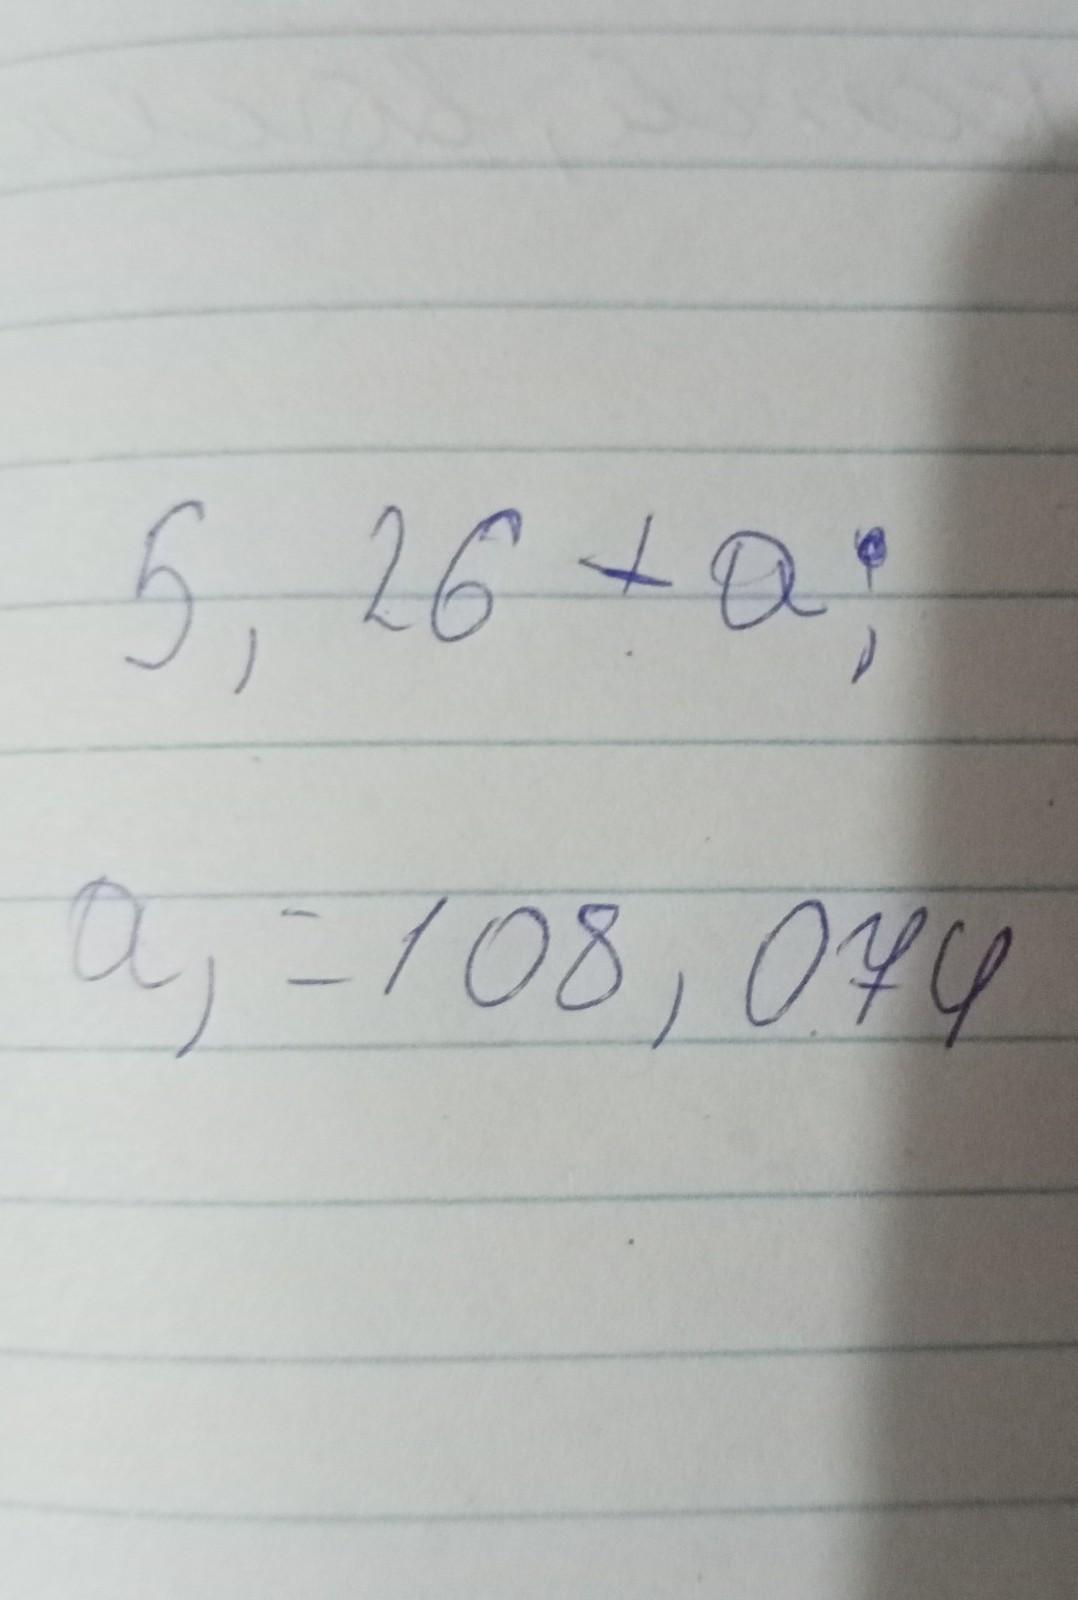 5, 26 + a;
a, = 108, 074